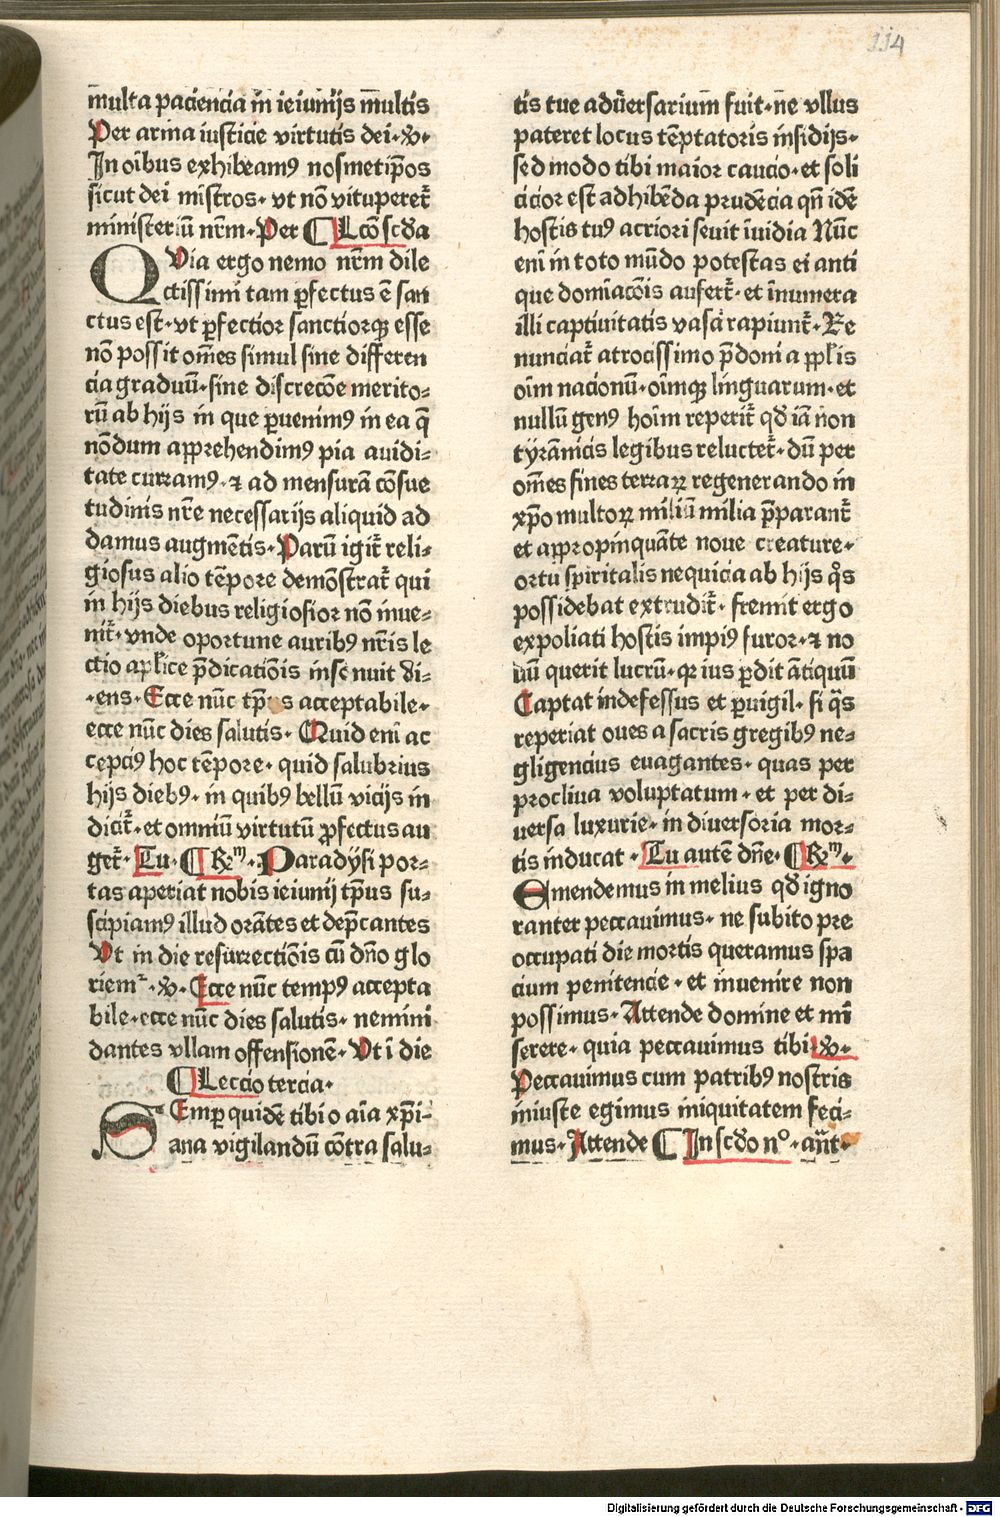 114
multa paciencia in ieiunijs multis
Per arma iusticie virtutis dei·⁊c·
In oībus exhibeamꝰ nosmetip̄os
sicut dei mīstros· vt nō vituperet᷑
ministeriū nr̄m·Per ¶Lcō scd̄a
QVia ergo nemo nr̄m dile
ctissimi tam ꝑfectus ē san
ctus est· vt ꝑfectior sanctiorqꝫ esse
nō possit om̄es simul sine differen
cia graduū·sine discrecōe merito⸗
rū ab hijs in que ꝑuenimꝰ in ea q̄
nōdum apprehendimꝰ pia auidi⸗
tate curramꝰ·⁊ ad mensurā cōsue
tudinis nr̄e necessarijs aliquid ad
damus augmētis·Parū igit᷑ reli⸗
giosus alio tēpore demōstrat᷑ qui
in hijs diebus religiosior nō inue⸗
nit᷑·vnde oportune auribꝰ nr̄is le
ctio aplīce p̄dicatiōis insenuit di⸗
·ens·Ecce nūc tp̄us acceptabile·
ecce nūc dies salutis· Quid eni̅ ac
cepciꝰ hoc tēpore· quid salubrius
hijs diebꝰ· in quibꝰ bellū vicijs in
dicit᷑·et omniū virtutū ꝓfectus au
get᷑·Tu·¶Rm·Paradysi por⸗
tas aperiat nobis ieiunij tp̄us su⸗
scipiamꝰ illud orātes et dep̄cantes
Vt in die resurrectiōis cū dn̄o glo
riem̄·⁊c·Ecce nūc tempꝰ accepta
bile·ecce nūc dies salutis· nemini
dantes vllam offensionē·Vt ī die
¶Leccio tercia·
SEmꝑ quidē tibi o aīa xp̄i⸗
ana vigilandū cōtra salu⸗
tis tue adūersarium fuit·ne vllus
pateret locus tēptatoris insidijs·
sed modo tibi maior caucio·et soli
cicior est adhibēda prudēcia qn̄ idē
hostis tuꝰ acriori seuit īuidia Nūc
eni̅ in toto mūdo potestas ei anti
que domīacōis aufert᷑·et īnumera
illi captiuitatis vasa rapiunt᷑·Re
nunciat᷑ atrocissimo p̄doni a ppl̄is
oīm nacionū·oīmqꝫ linguarum·et
nullū genꝰ hoīm reperit᷑ qd̄ iā non
tyrānicis legibus reluctet᷑·dū per
om̄es fines terraꝝ regenerando in
xp̄o multoꝝ miliū milia p̄parant᷑
et appropinquāte noue creature·
ortu spiritalis nequicia ab hijs q̄s
possidebat extrudit᷑· fremit ergo
expoliati hostis impiꝰ furor·⁊ no
uū querit lucrū·qꝛ ius ꝑdit ātiquū
Captat indefessus et ꝑuigil· si q̄s
reperiat oues a sacris gregibꝰ ne⸗
gligencius euagantes· quas per
procliua voluptatum· et per di⸗
uersa luxurie· in diuersoria mor⸗
tis inducat ·Tu autē dn̄e·¶Rm·
Emendemus in melius qd̄ igno
ranter peccauimus· ne subito pre
occupati die mortis queramus spa
cium penitencie· et inuenire non
possimus·Attende domine et mi̅
serere· quia peccauimus tibi·⁊c·
Peccauimus cum patribꝰ nostris
iniuste egimus iniquitatem feci⸗
mus·Attende ¶In scd̄o no·an̄t·
Digitalisierung gefördert durch die Deutsche Forschungsgemeinschaft - DFG